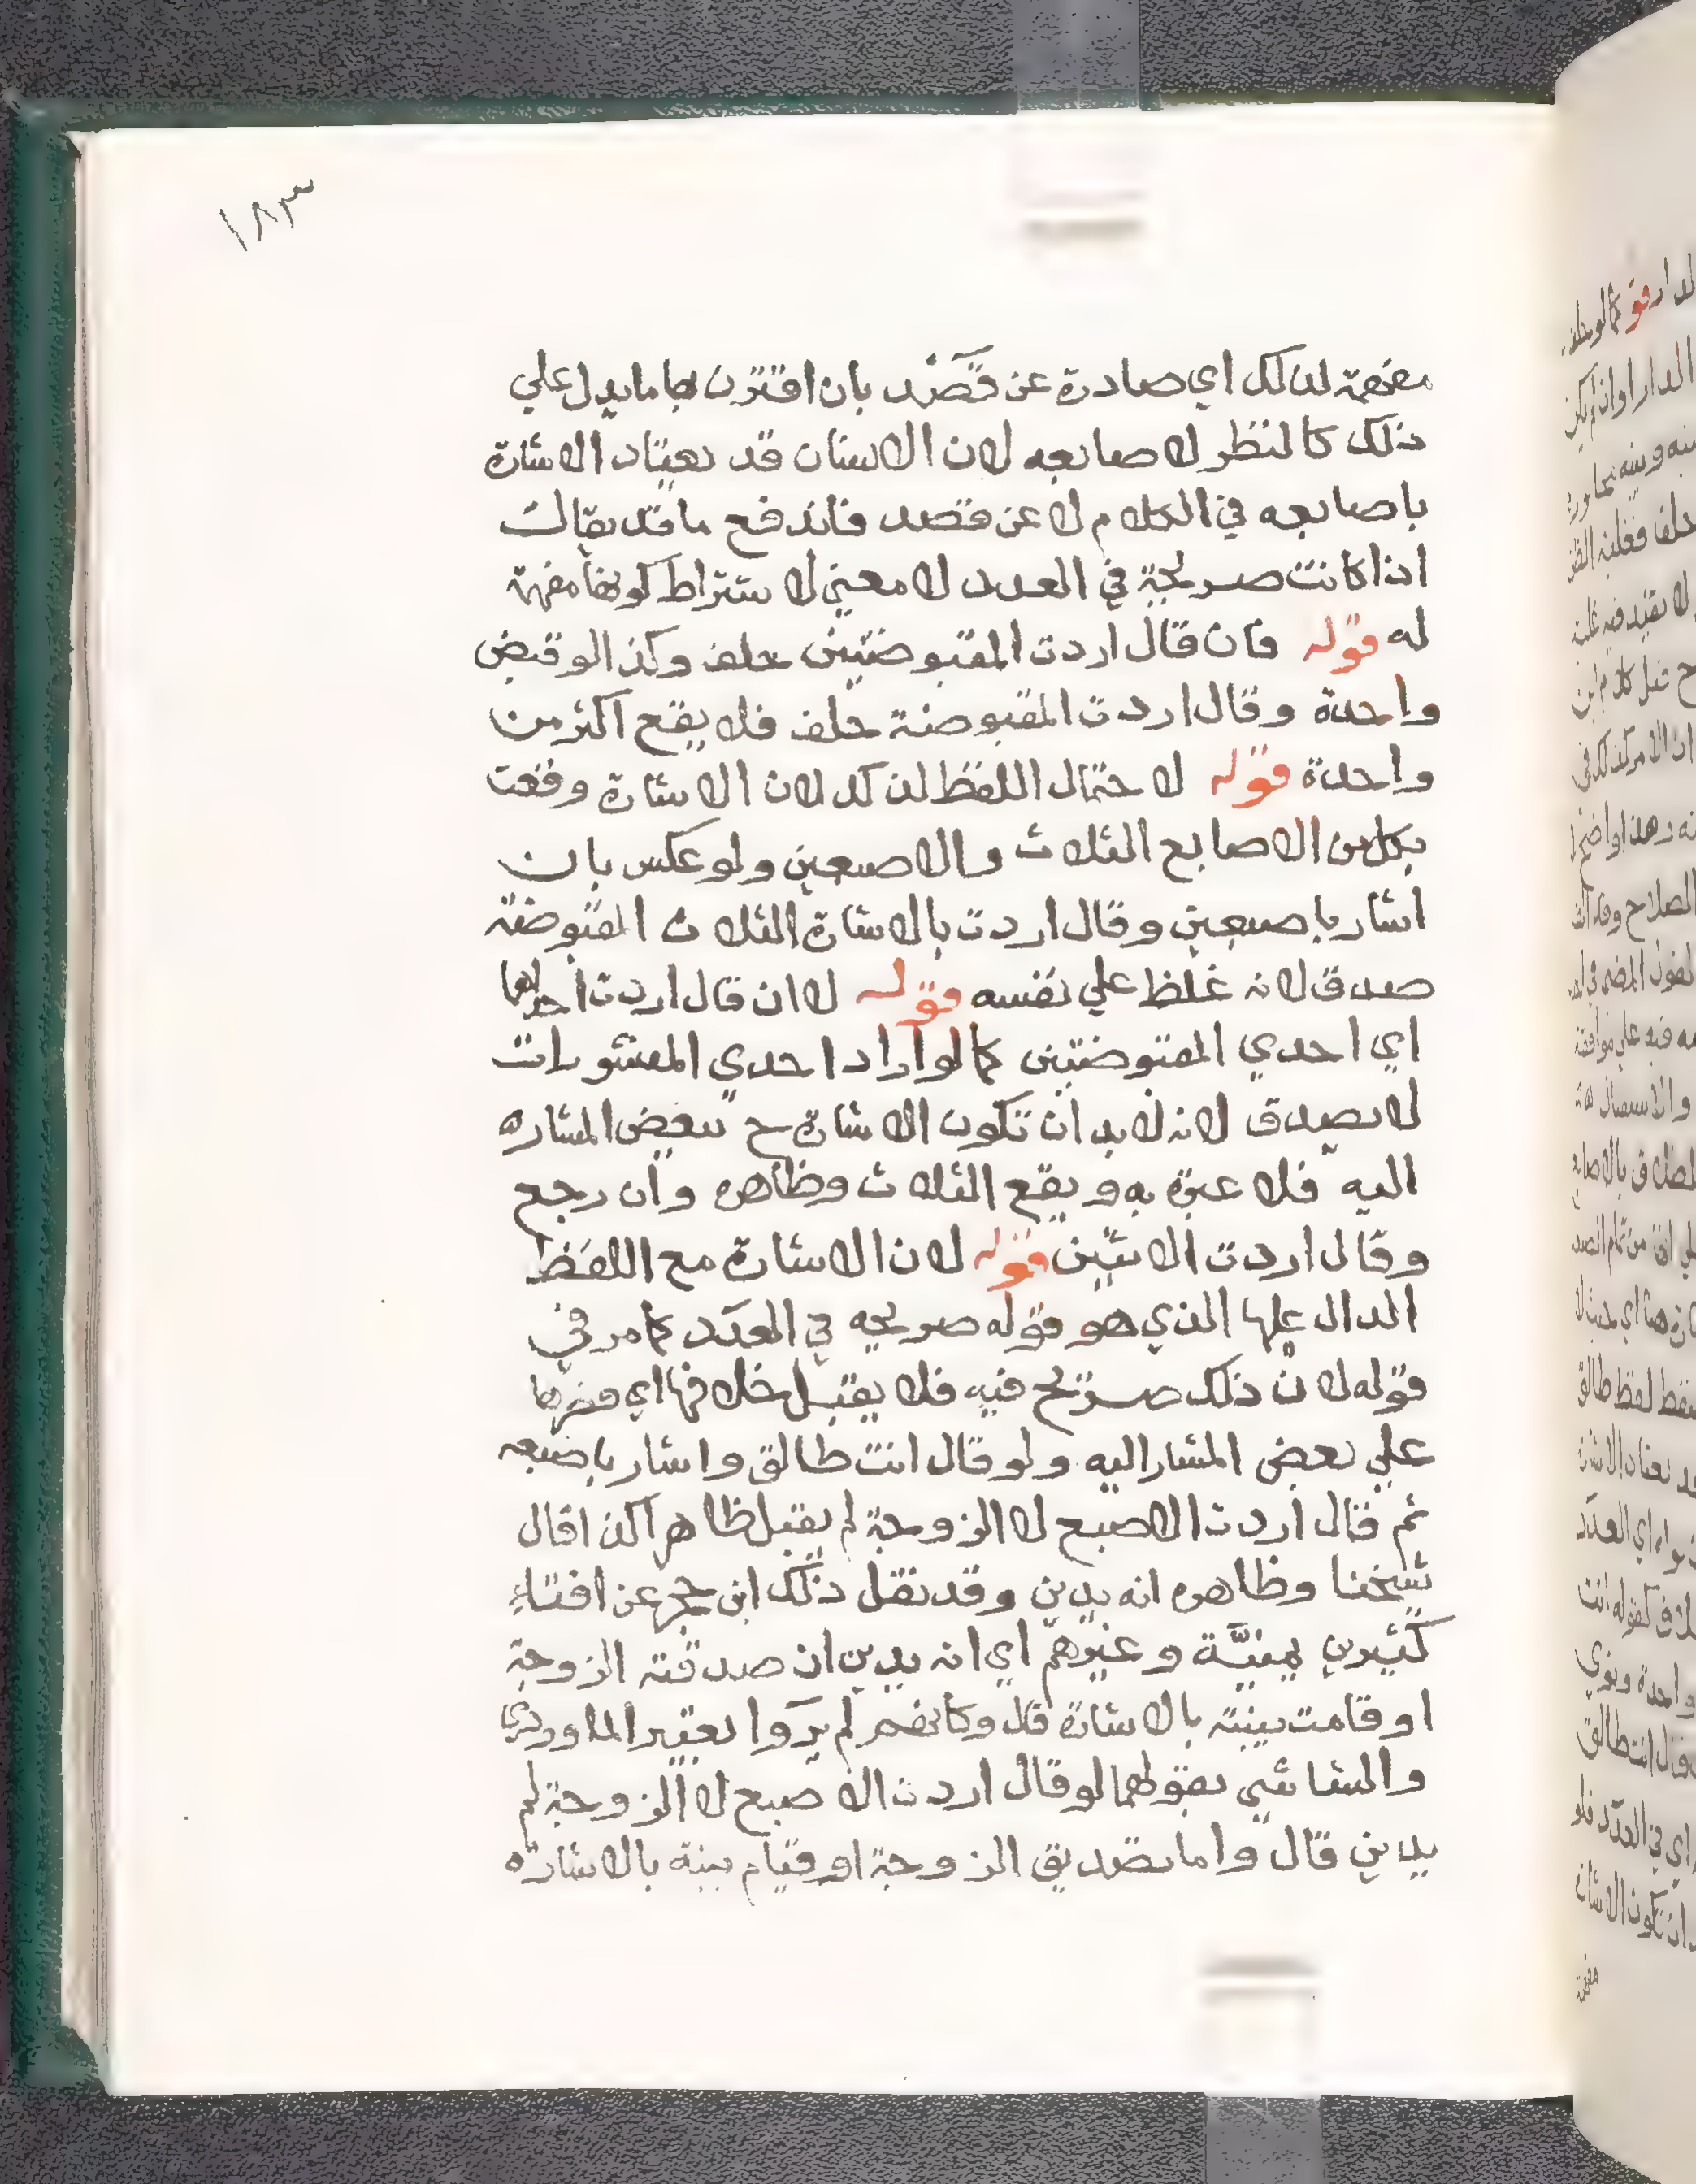 ١٨٣
مفهمة لذلك اي صادرة عن قصد بان اقترن بها ما يدل علي
ذلك كالنظر لاصابعه لان الانسان قد يعتاد الاشارة
باصابعه في الكلام لا عن قصد فاندفع ما قد يقال
اذا كانت صريحة في العدد لا معني لاشتراط كونها مفهمة
له قوله فان قال اردت المقبوضتين حلف وكذا لو قبض
واحدة وقال اردت المقبوضة حلف فلا يقع اكثر من
واحدة قوله لاحتمال اللفظ لذلك لان الاشارة وقعت
بكل من الاصابع الثلاث والاصبعين ولو عكس بان
اشار باصبعين وقال اردت بالاشارة الثلاث المقبوضة
صدق لانه غلظ علي نفسه قوله لا ان قال اردت احداهما
اي احدي المقبوضتين كما لو اراد احدي المنشورات
لا يصدق لانه لا بد ان تكون الاشارة ح ببعض المشاره
اليه فلا عبرة به ويقع الثلاث وظاهره وان رجع
وقال اردت الاثنين قوله لان الاشارة مع اللفظ
الدال عليها الذي هو قوله صريحه في العدد كما مر في
قوله لان ذلك صريح فيه فلا يقبل خلافها اي قصرها
علي بعض المشار اليه ولو قال انت طالق واشار باصبعه
ثم قال اردت الاصبع لا الزوجة لم يقبل ظاهرا كذا قال
شيخنا وظاهره انه يدين وقد نقل ذلك ابن حجر عن افتاء
كثيرين يمنيَّة وغيرهم اي انه يدين ان صدقته الزوجة
او قامت بينة بالاشارة قال وكانهم لم يروا تعبير الماوردي
والشاشي بقولهما لو قال اردت الاصبع لا الزوجة لم
يدين قال واما تصديق الزوجة او قيام بينة بالاشارة